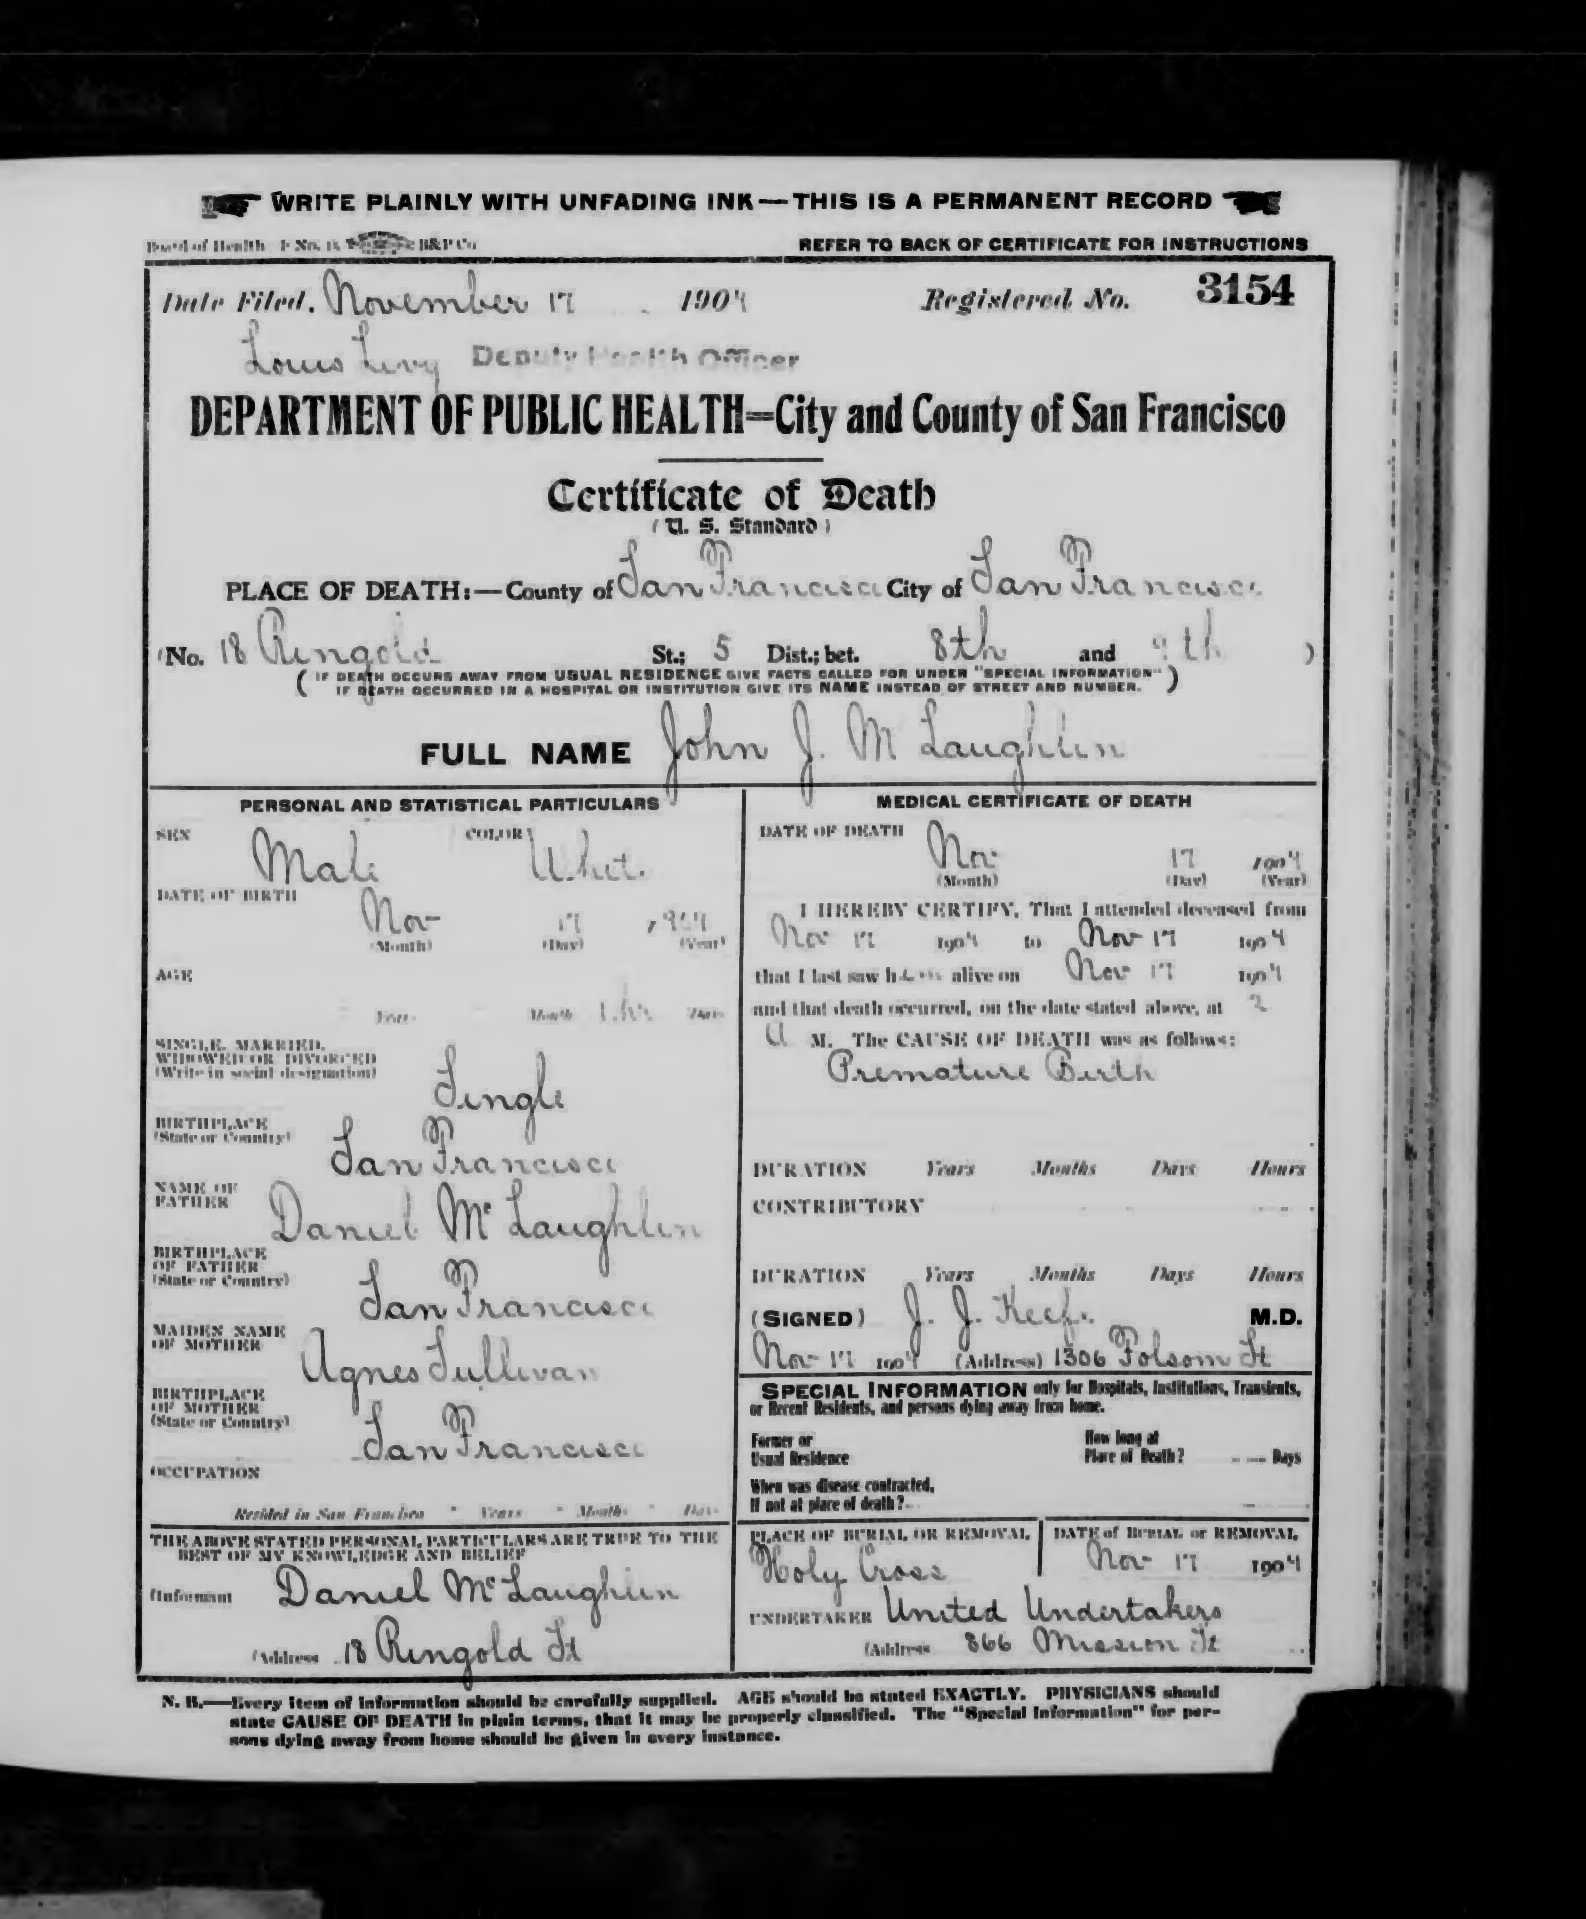 WRITE PLAINLY WITH UNFADING INK—THIS IS A PERMANENT RECORD
Board of Health F No. B&P Co
REFER TO BACK OF CERTIFICATE FOR INSTRUCTIONS
Date Filed. November 17 1904
Registered No. 3154
Louis Levy Deputy Health Officer
DEPARTMENT OF PUBLIC HEALTH=City and County of San Francisco
Certificate of Death
(U. S. Standard)
PLACE OF DEATH:—County of San Francisco City of San Francisco
(No. 18 Ringold St.; 5 Dist.; bet. 8th and 9th )
( IF DEATH OCCURS AWAY FROM USUAL RESIDENCE GIVE FACTS CALLED FOR UNDER "SPECIAL INFORMATION"
IF DEATH OCCURRED IN A HOSPITAL OR INSTITUTION GIVE ITS NAME INSTEAD OF STREET AND NUMBER. )
FULL NAME John J. Mc Laughlin
PERSONAL AND STATISTICAL PARTICULARS
SEX Male COLOR White
DATE OF BIRTH
Nov 17 1904
(Month) (Day) (Year)
AGE
Years Months 1 hr Days
SINGLE, MARRIED,
WIDOWED OR DIVORCED
(Write in social designation)
Single
BIRTHPLACE
(State or Country)
San Francisco
NAME OF
FATHER
Daniel Mc Laughlin
BIRTHPLACE
OF FATHER
(State or Country)
San Francisco
MAIDEN NAME
OF MOTHER
Agnes Sullivan
BIRTHPLACE
OF MOTHER
(State or Country)
San Francisco
OCCUPATION
Resided in San Francisco Years Months Days
THE ABOVE STATED PERSONAL PARTICULARS ARE TRUE TO THE
BEST OF MY KNOWLEDGE AND BELIEF
(Informant Daniel Mc Laughlin
(Address 18 Ringold St
MEDICAL CERTIFICATE OF DEATH
DATE OF DEATH
Nov 17 1904
(Month) (Day) (Year)
I HEREBY CERTIFY, That I attended deceased from
Nov 17 1904 to Nov 17 1904
that I last saw him alive on Nov 17 1904
and that death occurred, on the date stated above, at 2
A M. The CAUSE OF DEATH was as follows:
Premature Birth
DURATION Years Months Days Hours
CONTRIBUTORY
DURATION Years Months Days Hours
(SIGNED) J. J. Keefe M.D.
Nov 17 1904 (Address) 1306 Folsom St
SPECIAL INFORMATION only for Hospitals, Institutions, Transients,
or Recent Residents, and persons dying away from home.
Former or
Usual Residence
How long at
Place of Death? Days
When was disease contracted,
If not at place of death?
PLACE OF BURIAL OR REMOVAL
Holy Cross
DATE of BURIAL or REMOVAL
Nov 17 1904
UNDERTAKER United Undertakers
(Address 866 Mission St
N. B.—Every item of information should be carefully supplied. AGE should be stated EXACTLY. PHYSICIANS should
state CAUSE OF DEATH in plain terms, that it may be properly classified. The "Special Information" for per-
sons dying away from home should be given in every instance.